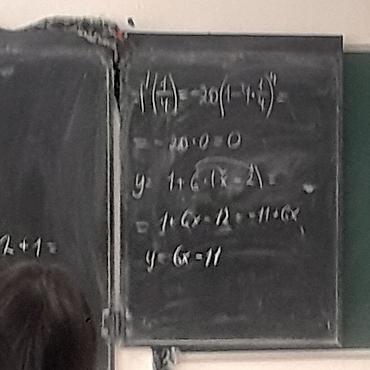 f'(1/4) = -20(1-4·1/4)⁴ =
= -20·0 = 0
y = 1+6·(x-2) =
= 1+6x-12 = -11+6x
y = 6x-11
2+1=